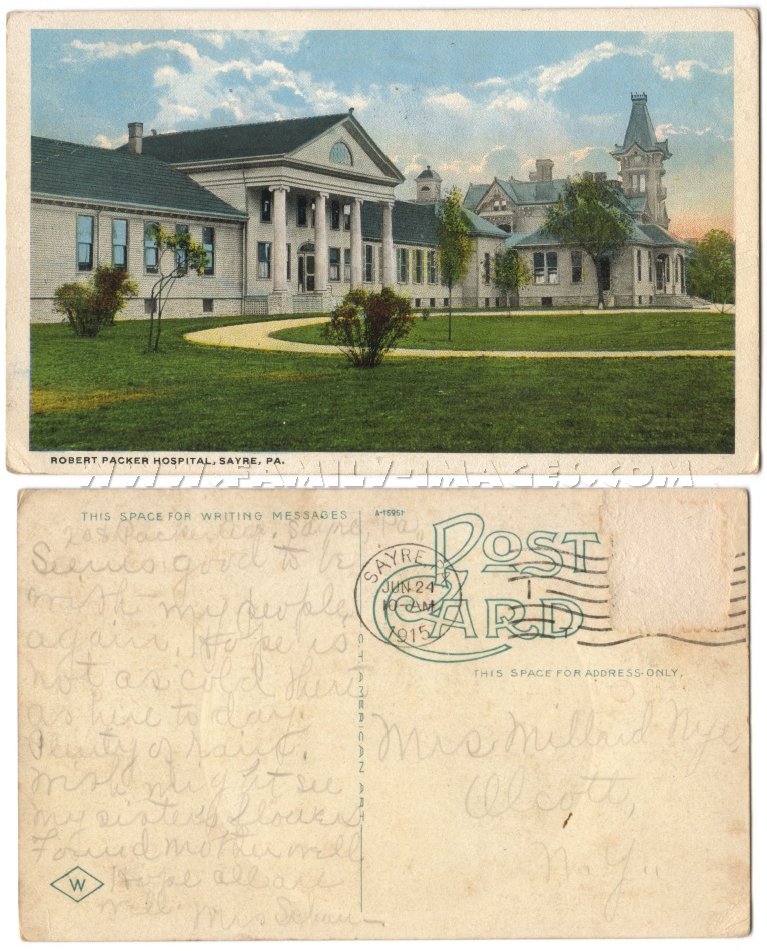 ROBERT PACKER HOSPITAL, SAYRE, PA.
WWW.FAMILY-IMAGES.COM
THIS SPACE FOR WRITING MESSAGES
A-15951
POST CARD
SAYRE, PA.
JUN 24
10-AM
1915
1
THIS SPACE FOR ADDRESS ONLY.
208 Packer Sayre, Pa.
Seems good to be
with my people
again. Hope is
not as cold there
as here to day.
Plenty of rain.
Wish might see
my sisters flowers
Found mother well
Hope all are
well.
Mrs
C.T. AMERICAN ART
W
Mrs Millard Nye,
Olcott,
N.Y.